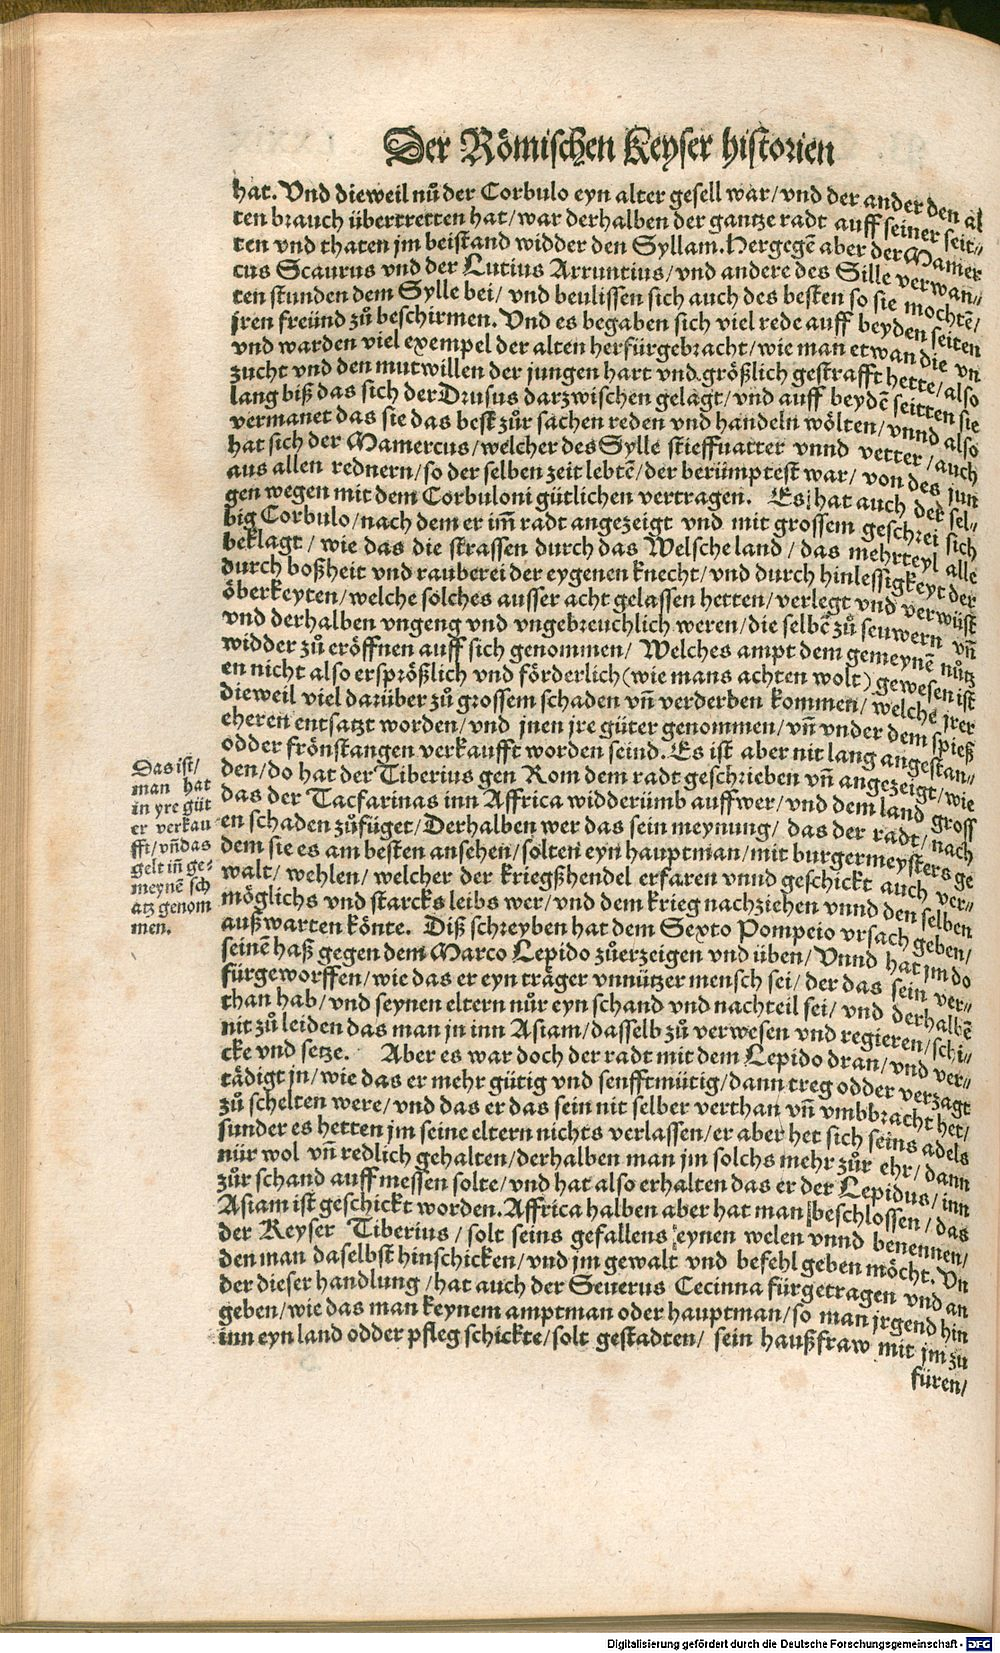 Der Römischen Keyser historien
hat. Vnd dieweil nů der Corbulo eyn alter gesell war/ vnd der ander den al
ten brauch übertretten hat/ war derhalben der gantze radt auff seiner seit⸗
ten vnd thaten jm beistand widder den Syllam. Hergegē aber der Mamer
cus Scaurus vnd der Lutius Arruntius/ vnd andere des Sille verwan⸗
ten stunden dem Sylle bei/ vnd beulissen sich auch des besten so sie mochtē/
jren freünd zů beschirmen. Vnd es begaben sich viel rede auff beyden seiten
vnd warden viel exempel der alten herfürgebracht/ wie man etwan die vn
zucht vnd den mutwillen der jungen hart vnd größlich gestrafft hette/ also
lang biß das sich der Drusus darzwischen gelagt/ vnd auff beydē seitten sie
vermanet das sie das best zůr sachen reden vnd handeln wölten/ vnnd also
hat sich der Mamercus/ welcher des Sylle stieffuatter vnnd vetter/ auch
aus allen rednern/ so der selben zeit lebtē/ der berümptest war/ von des jun
gen wegen mit dem Corbuloni gütlichen vertragen. Es hat auch der sel⸗
big Corbulo/ nach dem er im̄ radt angezeigt vnd mit grossem geschrei sich
beklagt/ wie das die strassen durch das Welsche land/ das mehrteyl alle
durch boßheit vnd rauberei der eygenen knecht/ vnd durch hinlessigkeyt der
öberkeyten/ welche solches ausser acht gelassen hetten/ verlegt vnd verwüst
vnd derhalben vngeng vnd vngebreuchlich weren/ die selbē zů seuwern vn̄
widder zů eröffnen auff sich genommen/ Welches ampt dem gemeynē nůtz
en nicht also ersprößlich vnd förderlich (wie mans achten wolt) gewesen ist
dieweil viel darüber zů grossem schaden vn̄ verderben kommen/ welche jrer
eheren entsatzt worden/ vnd jnen jre güter genommen/ vn̄ vnder dem spieß
odder frönstangen verkaufft worden seind. Es ist aber nit lang angestan⸗
den/ do hat der Tiberius gen Rom dem radt geschrieben vn̄ angezeigt/ wie
das der Tacfarinas inn Affrica widderümb auffwer/ vnd dem land gross
en schaden zůfüget/ Derhalben wer das sein meynung/ das der radt/ nach
dem sie es am besten ansehen/ solten eyn hauptman/ mit burgermeysters ge
walt/ wehlen/ welcher der kriegßhendel erfaren vnnd geschickt auch ver⸗
möglichs vnd starcks leibs wer/ vnd dem krieg nachziehen vnnd den selben
außwarten könte. Diß schreyben hat dem Sexto Pompeio vrsach geben/
seinē haß gegen dem Marco Lepido zůerzeigen vnd üben/ Vnnd hat jm do
fürgeworffen/ wie das er eyn träger vnnützer mensch sei/ der das sein ver⸗
than hab/ vnd seynen eltern nůr eyn schand vnd nachteil sei/ vnd derhalbē
nit zů leiden das man jn inn Asiam/ dasselb zů verwesen vnd regieren/ schi⸗
cke vnd setze. Aber es war doch der radt mit dem Lepido dran/ vnd ver⸗
tädigt jn/ wie das er mehr gütig vnd senfftmütig/ dann treg odder verzagt
zů schelten were/ vnd das er das sein nit selber verthan vn̄ vmbbracht het/
sunder es hetten jm seine eltern nichts verlassen/ er aber het sich seins adels
nür wol vn̄ redlich gehalten/ derhalben man jm solchs mehr zůr ehr/ dann
zůr schand auffmessen solte/ vnd hat also erhalten das er der Lepidus/ inn
Asiam ist geschickt worden. Affrica halben aber hat man beschlossen/ das
der Keyser Tiberius/ solt seins gefallens eynen welen vnnd benennen/
den man daselbst hinschicken/ vnd jm gewalt vnd befehl geben möcht. Vn
der dieser handlung/ hat auch der Seuerus Cecinna fürgetragen vnd an
geben/ wie das man keynem amptman oder hauptman/ so man jrgend hin
inn eyn land odder pfleg schickte/ solt gestadten/ sein haußfraw mit jm zu
füren/
Das ist/
man hat
in yre güt
er verkau
fft/ vn̄ das
gelt in̄ ge⸗
meynē sch
atz genom
men.
Digitalisierung gefördert durch die Deutsche Forschungsgemeinschaft - DFG